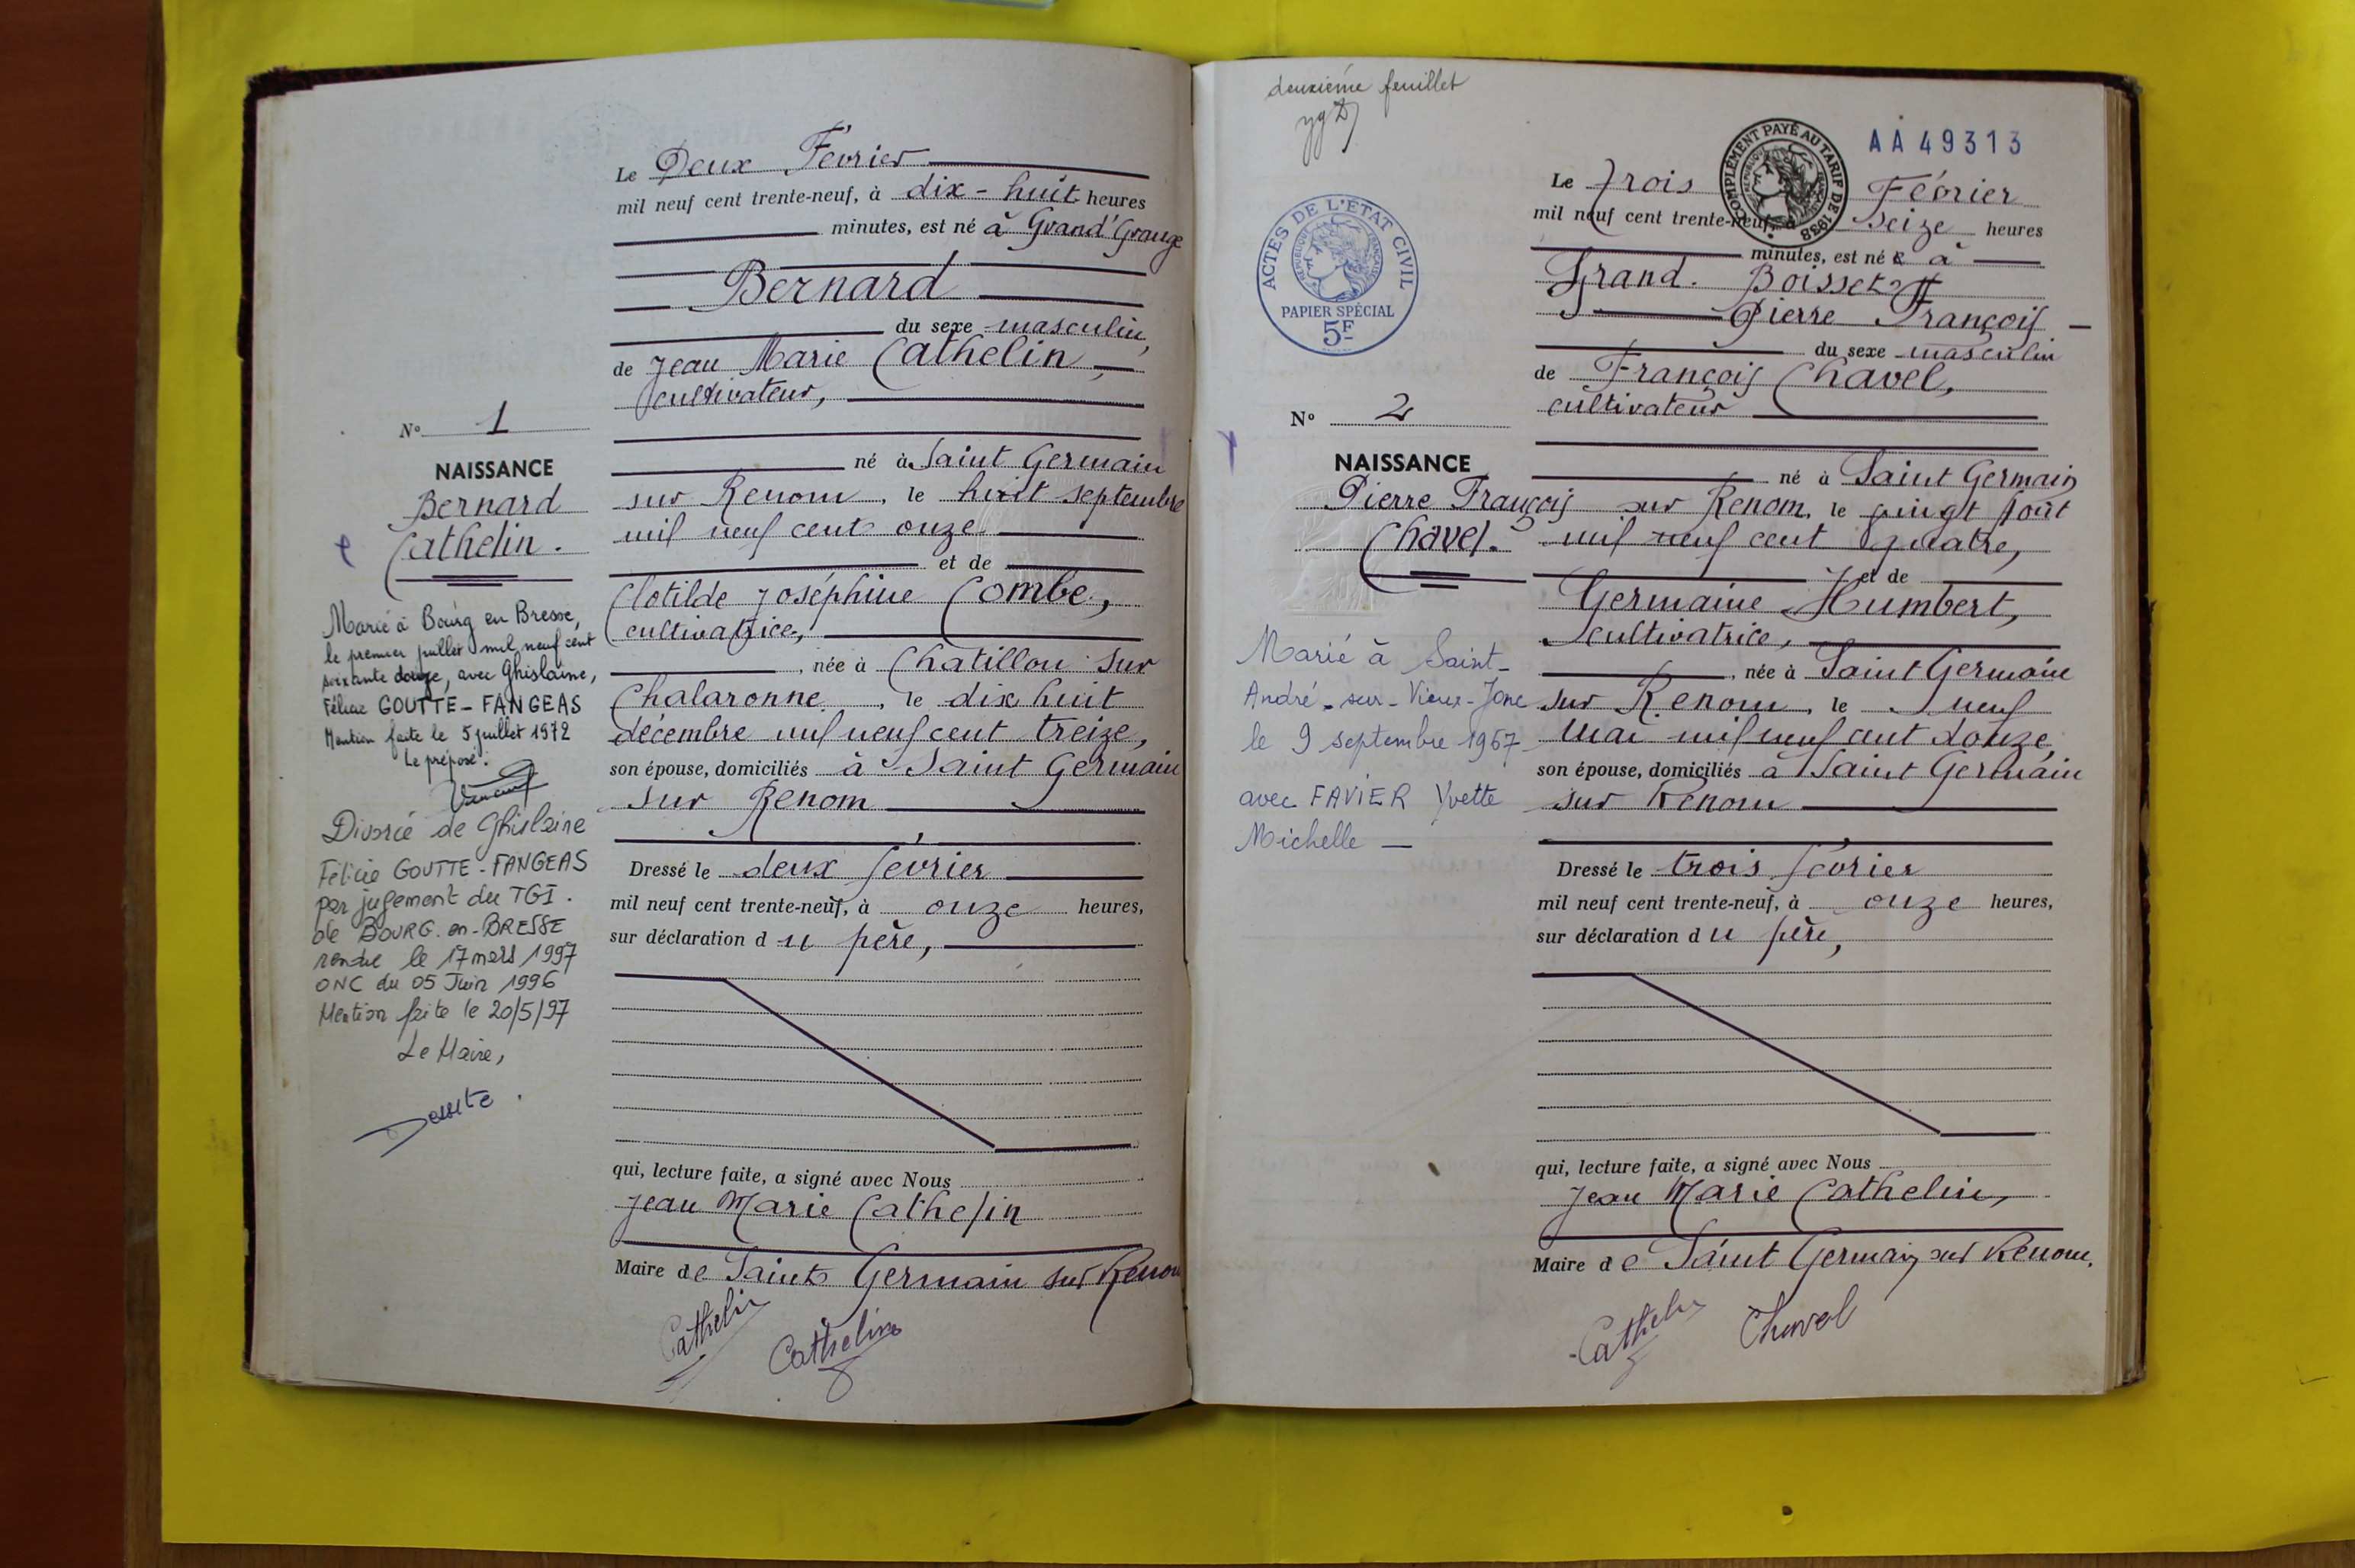 Le Deux Février
mil neuf cent trente-neuf, à dix-huit heures
minutes, est né à Grand'Grange
Bernard
du sexe masculin,
de Jean Marie Cathelin,
cultivateur,
né à Saint Germain
sur Renom, le huit septembre
mil neuf cent onze
et de
Clotilde Joséphine Combe,
cultivatrice,
, née à Chatillon sur
Chalaronne, le dix huit
décembre mil neuf cent treize,
son épouse, domiciliés à Saint Germain
sur Renom
Dressé le deux février
mil neuf cent trente-neuf, à onze heures,
sur déclaration du père,
qui, lecture faite, a signé avec Nous
Jean Marie Cathelin
Maire de Saint Germain sur Renom
Cathelin
Cathelin
N° 1
NAISSANCE
Bernard
Cathelin.
Marié à Bourg en Bresse,
le premier juillet mil neuf cent
soixante douze, avec Ghislaine,
Félicie GOUTTE-FANGEAS
Mention faite le 5 juillet 1972
Le préposé.
Divorcé de Ghislaine
Félicie GOUTTE-FANGEAS
par jugement du TGI.
de BOURG-en-BRESSE
rendu le 17 mars 1997
ONC du 05 Juin 1996
Mention faite le 20/5/97
Le Maire,
deuxième feuillet
AA49313
COMPLÉMENT PAYÉ AU TARIF DE 1938
RÉPUBLIQUE FRANÇAISE
ACTES DE L'ÉTAT CIVIL
RÉPUBLIQUE FRANÇAISE
PAPIER SPÉCIAL
5F
Le Trois Février
mil neuf cent trente-neuf, à seize heures
minutes, est né à
Grand. Boisset
Pierre François
du sexe masculin
de François Chavel,
cultivateur
né à Saint Germain
sur Renom, le vingt Août
mil neuf cent quatre,
et de
Germaine Humbert,
cultivatrice,
, née à Saint Germain
sur Renom, le neuf
Mai mil neuf cent douze,
son épouse, domiciliés à Saint Germain
sur Renom
Dressé le trois février
mil neuf cent trente-neuf, à onze heures,
sur déclaration du père,
qui, lecture faite, a signé avec Nous
Jean Marie Cathelin,
Maire de Saint Germain sur Renom.
Cathelin
Chavel
N° 2
NAISSANCE
Pierre François
Chavel.
Marié à Saint-
André-sur-Vieux-Jonc
le 9 septembre 1967
avec FAVIER Yvette
Michelle —